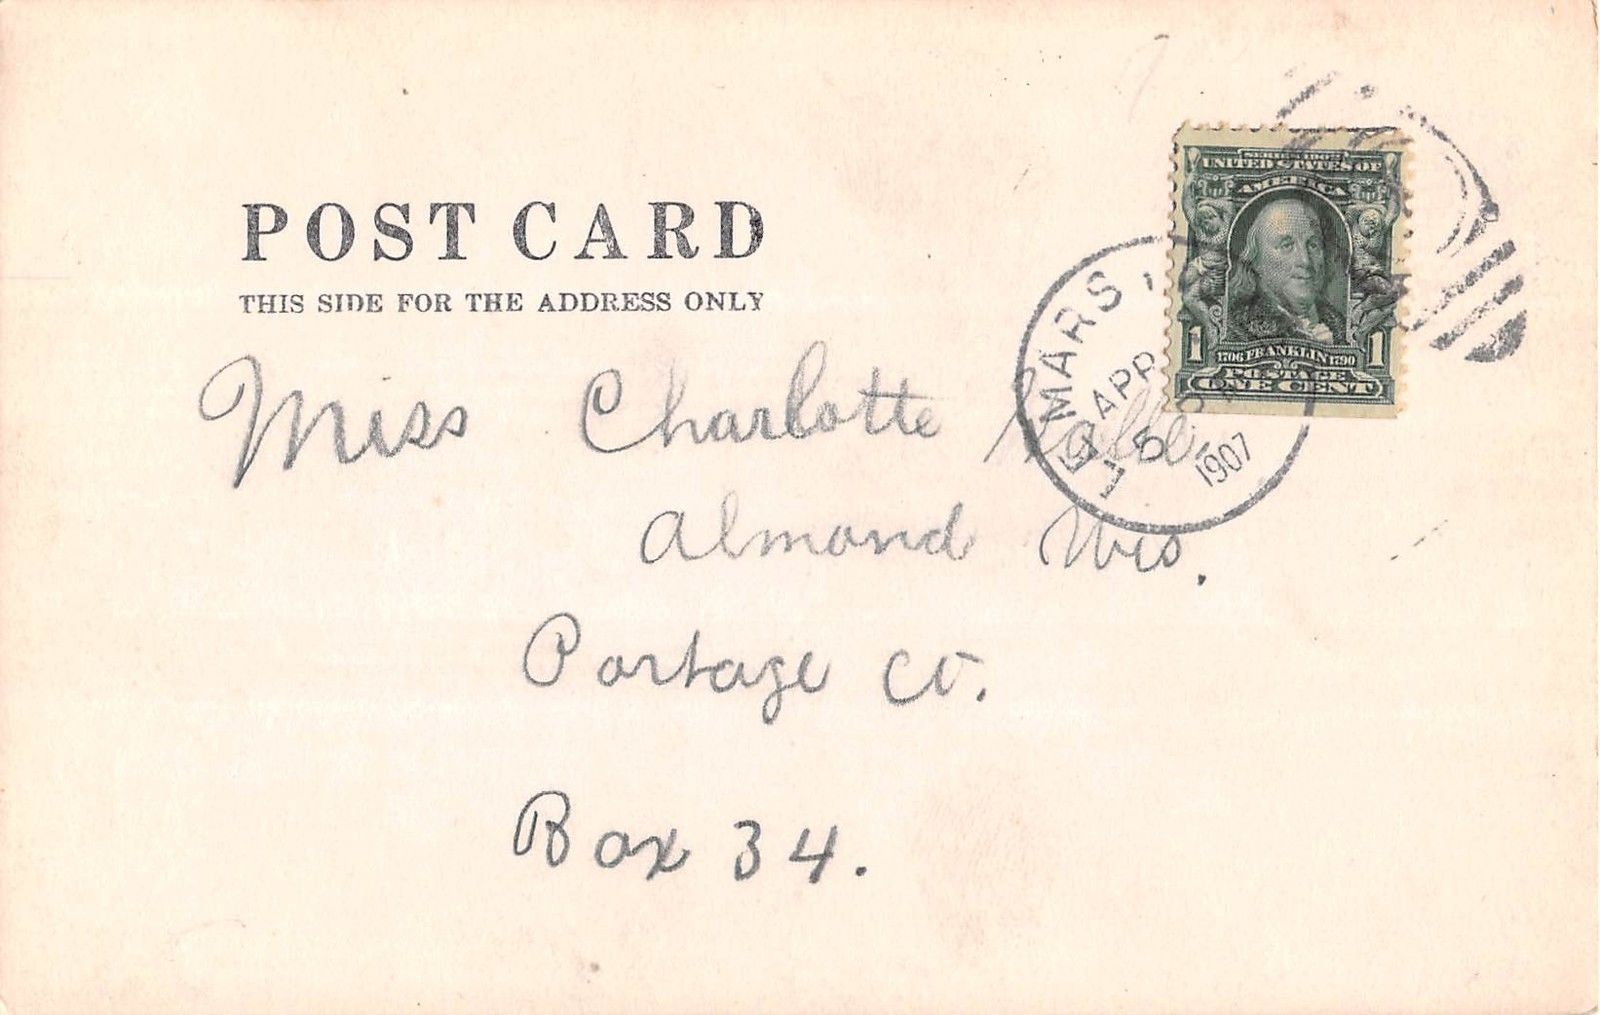 POST CARD
THIS SIDE FOR THE ADDRESS ONLY
SERIES 1902
UNITED STATES OF
AMERICA
1 1706 FRANKLIN 1790 1
POSTAGE
ONE CENT
LE MARS
APR
5
1907
Miss Charlotte
Almond Wis.
Portage Co.
Box 34.